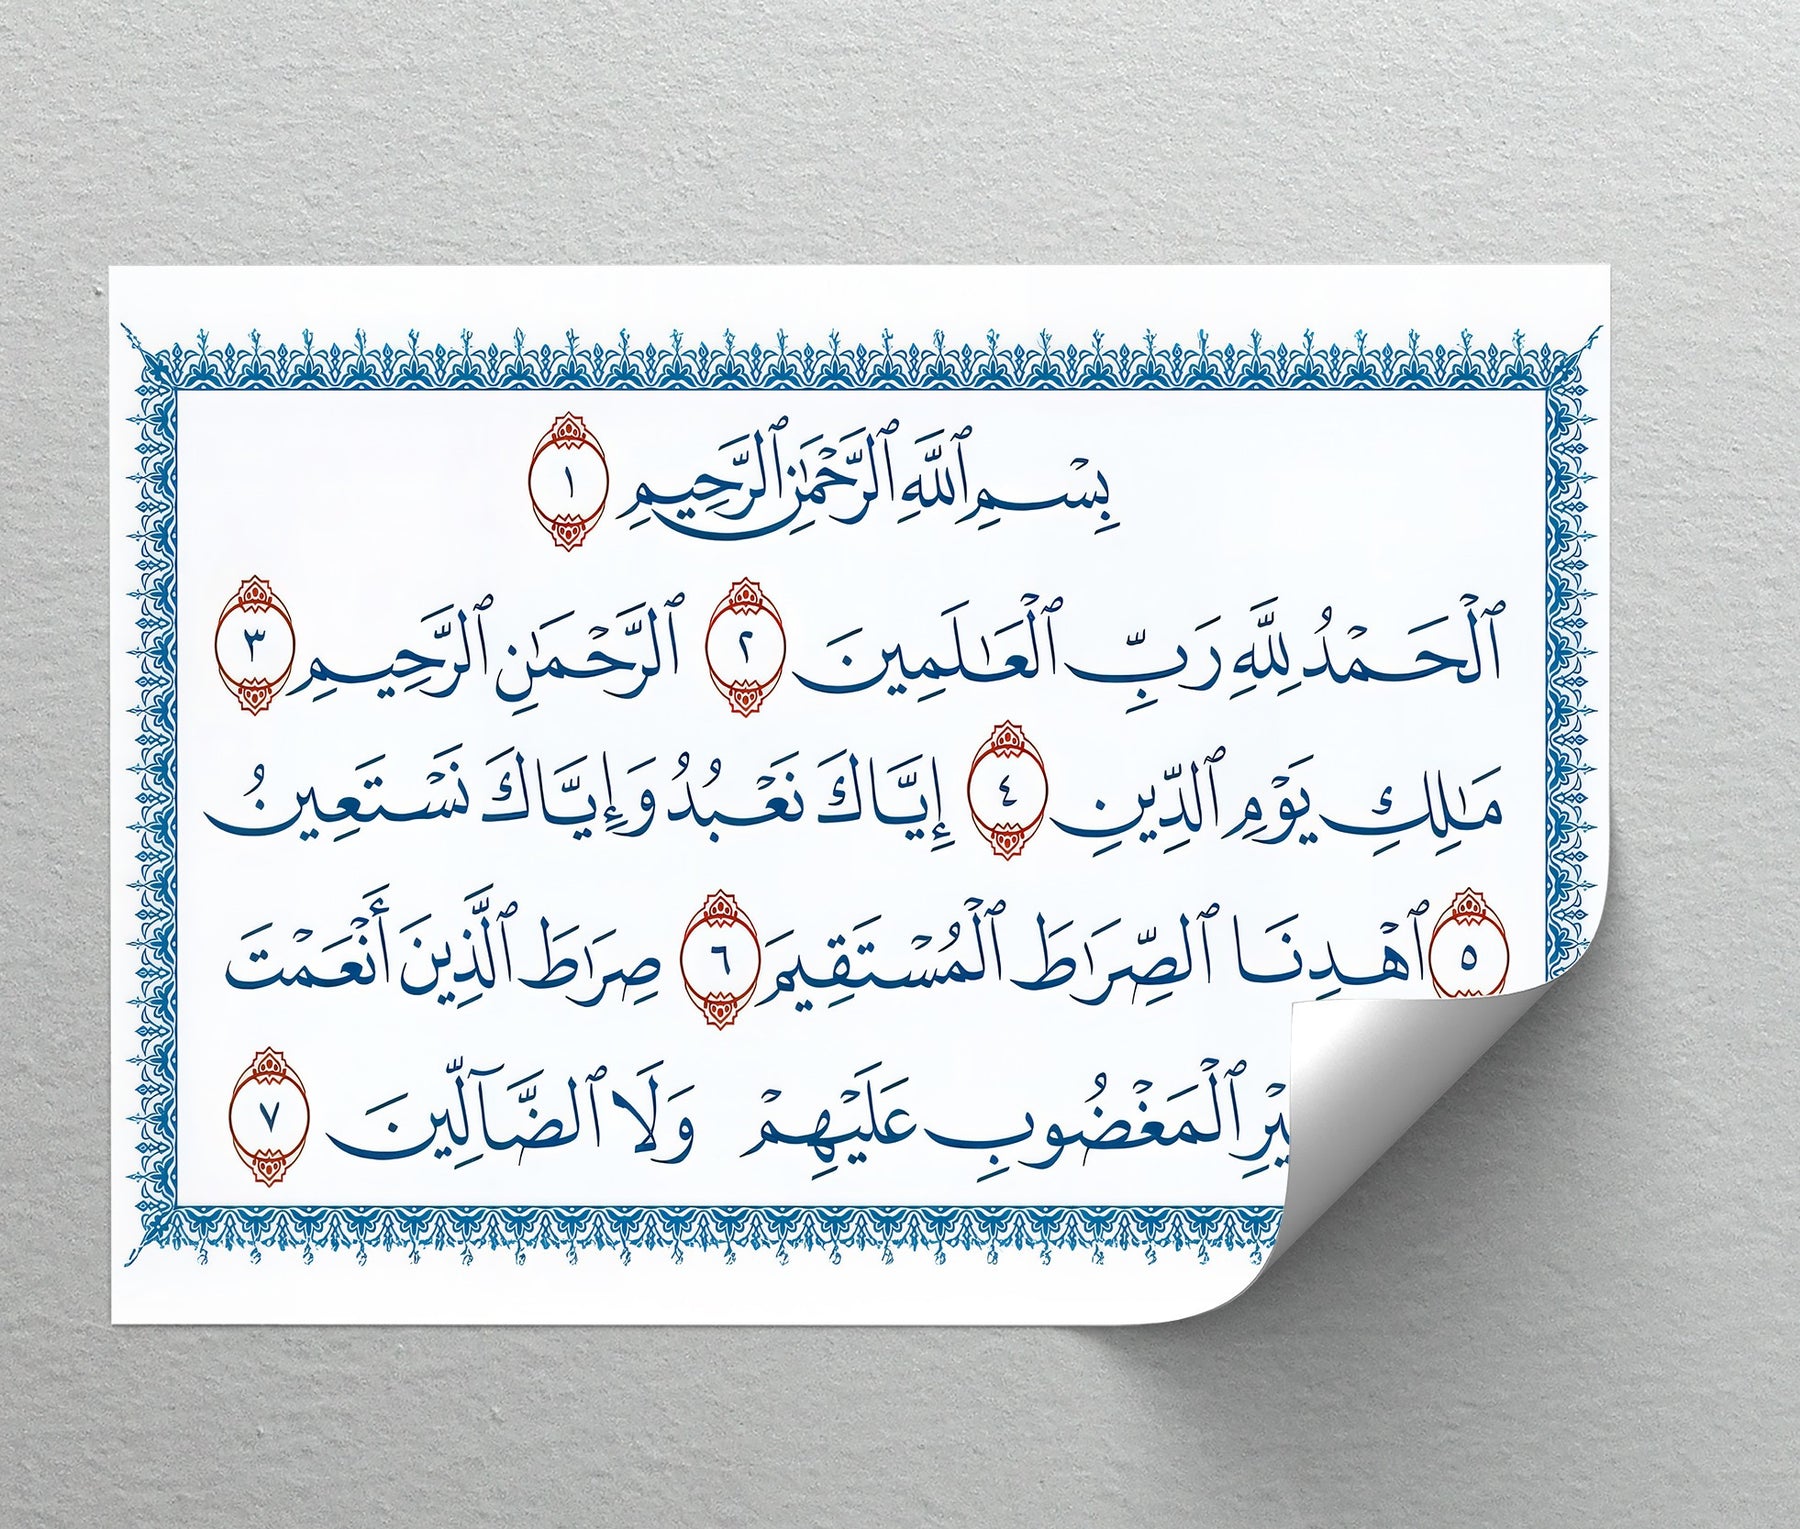 بِسْمِ ٱللَّهِ ٱلرَّحْمَٰنِ ٱلرَّحِيمِ ١
ٱلْحَمْدُ لِلَّهِ رَبِّ ٱلْعَٰلَمِينَ ٢ ٱلرَّحْمَٰنِ ٱلرَّحِيمِ ٣
مَٰلِكِ يَوْمِ ٱلدِّينِ ٤ إِيَّاكَ نَعْبُدُ وَإِيَّاكَ نَسْتَعِينُ
٥ ٱهْدِنَا ٱلصِّرَٰطَ ٱلْمُسْتَقِيمَ ٦ صِرَٰطَ ٱلَّذِينَ أَنْعَمْتَ
ٱلْمَغْضُوبِ عَلَيْهِمْ وَلَا ٱلضَّآلِّينَ ٧